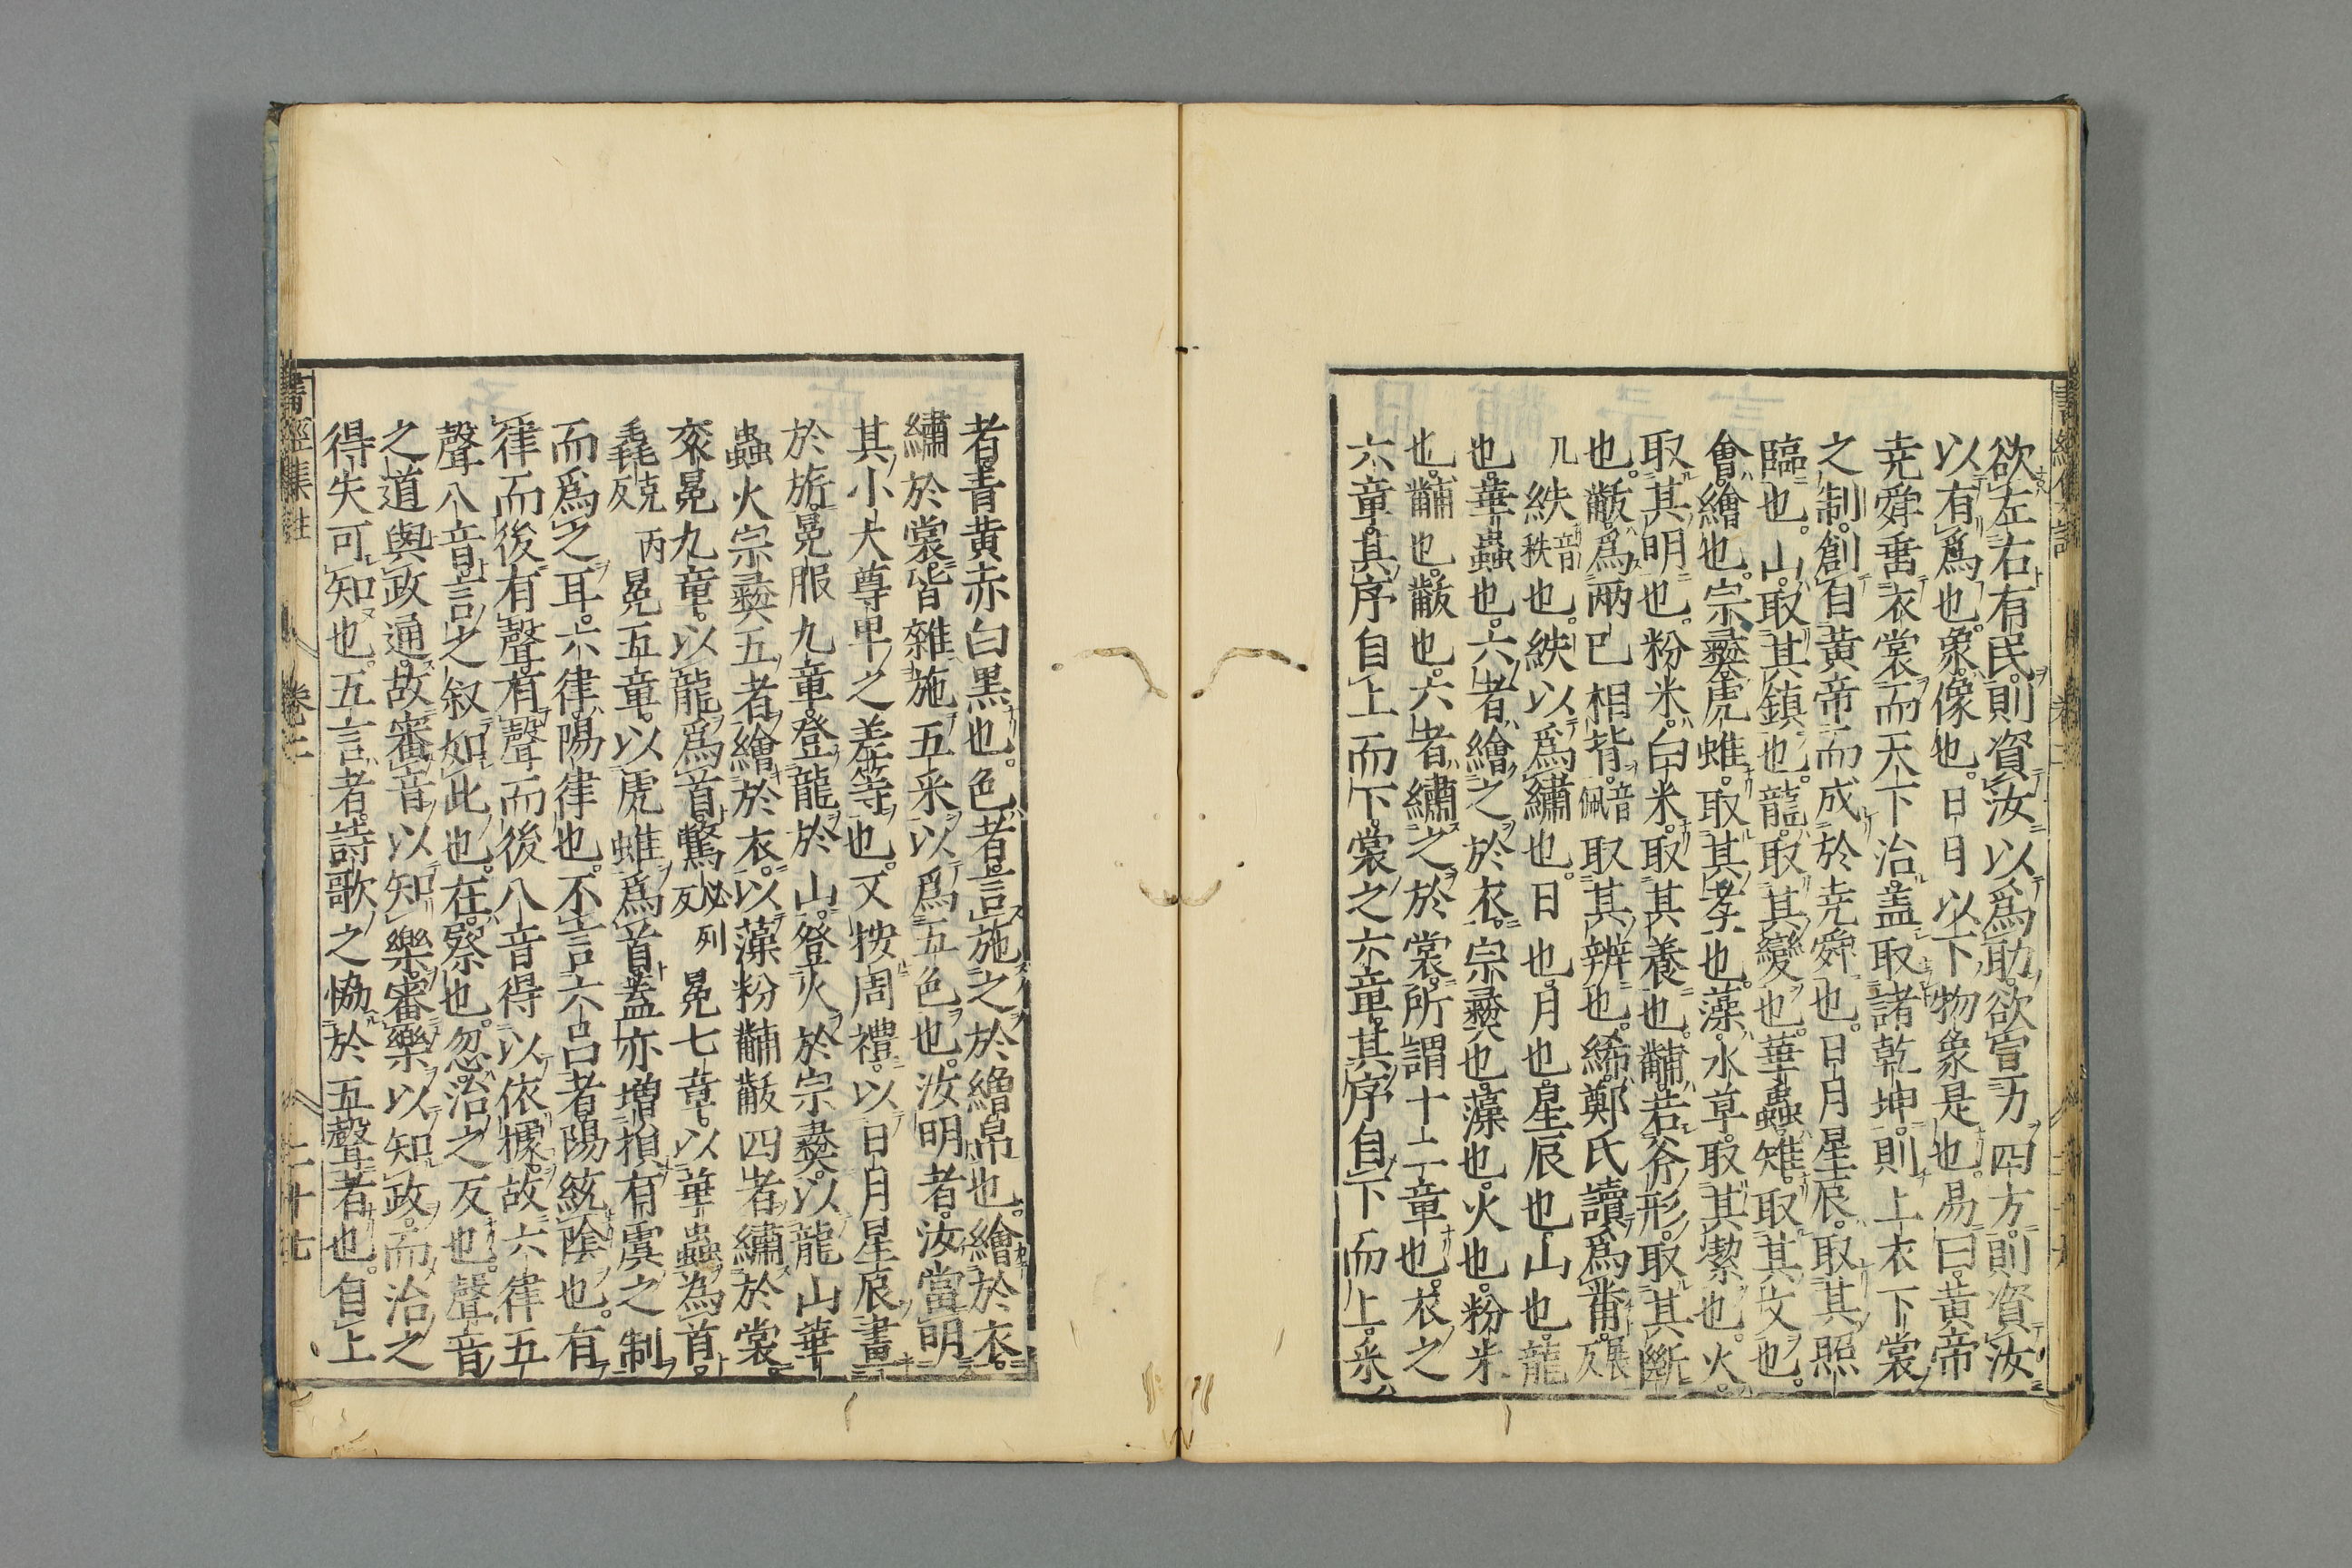 欲左右有民則資汝以爲助欲宣力四方則資汝
以有爲也象像也日月以下物象是也易曰黄帝
尭舜垂衣裳而天下治盖取諸乾坤則上衣下裳
之制創自黄帝而成於尭舜也日月星辰取其照
臨也山取其鎮也龍取其變也華蟲雉取其文也
會繪也宗彜虎蜼取其孝也藻水草取其潔也火
取其明也粉米白米取其養也黼若斧形取其斷
也黻爲兩已相背音佩取其辨也絺鄭氏讀爲黹展
几反紩音秩也紩以爲繡也日也月也星辰也山也龍
也華蟲也六者繪之於衣宗彜也藻也火也粉米
也黼也黻也六者繡之於裳所謂十二章也衣之
六章其序自上而下裳之六章其序自下而上采
者青黄赤白黒也色者言施之於繒帛也繪於衣
繡於裳皆雜施五采以爲五色也汝明者汝當明
其小大尊卑之差等也又按周禮以日月星辰畫
於旂冕服九章登龍於山登火於宗彜以龍山華
蟲火宗彜五者繪於衣以藻粉黼黻四者繡於裳
衮冕九章以龍爲首鷩必列反冕七章以華蟲為首
毳充丙反冕五章以虎蜼爲首盖亦増損有虞之制
而爲之耳六律陽律也不言六呂者陽統隂也有
律而後有聲有聲而後八音得以依據故六律五
聲八音言之叙如此也在察也忽治之反也聲音
之道與政通故審音以知樂審樂以知政而治之
得失可知也五言者詩歌之恊於五聲者也自上
書經集註
卷二
二十七